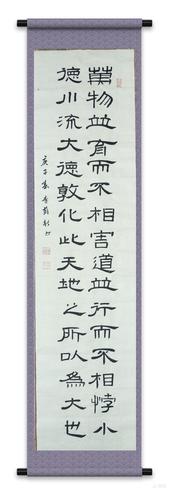 万物並育而不相害道並行而不相悖小
德川流大德敦化此天地之所以為大也
庚子春